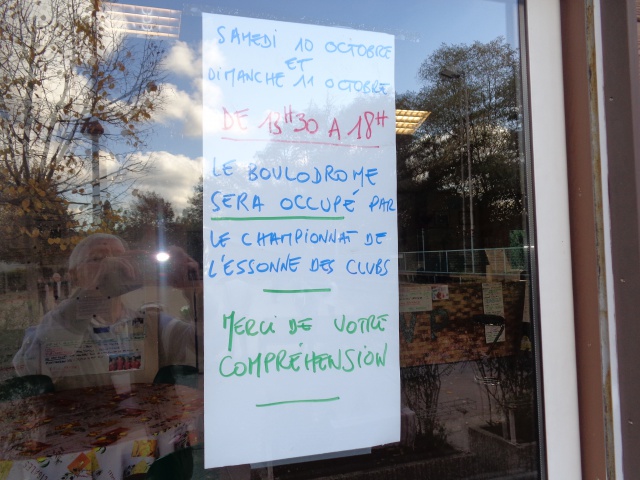 SAMEDI 10 OCTOBRE
ET
DIMANCHE 11 OCTOBRE
DE 13H30 A 18H
LE BOULODROME
SERA OCCUPÉ PAR
LE CHAMPIONNAT DE
L'ESSONNE DES CLUBS
MERCI DE VOTRE
COMPRÉHENSION